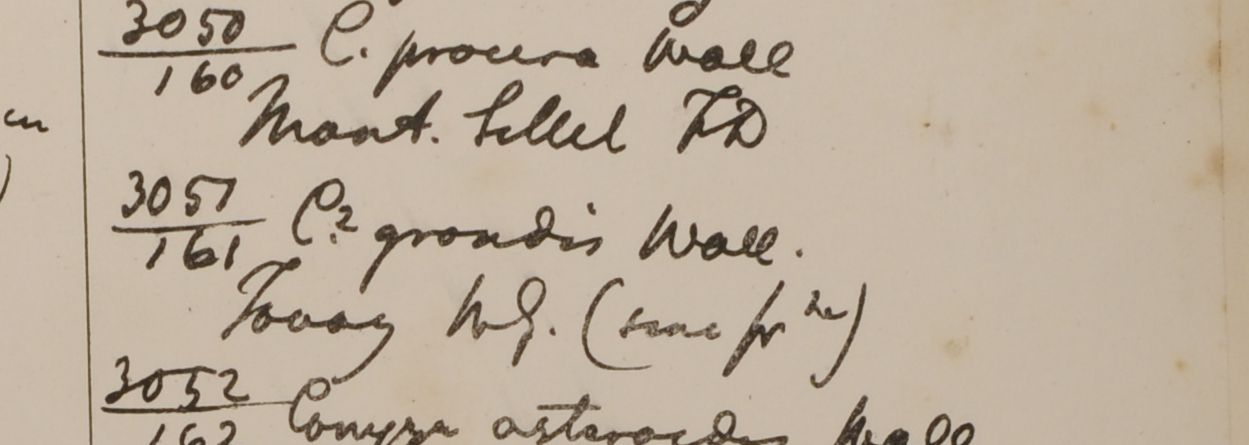 3050
160 C. procera Wall
Mont. Sillet FD
3051
161 C.? grandis Wall.
Tavoy W.G. (sine fr
3052
162 Conyza asteroides Wall